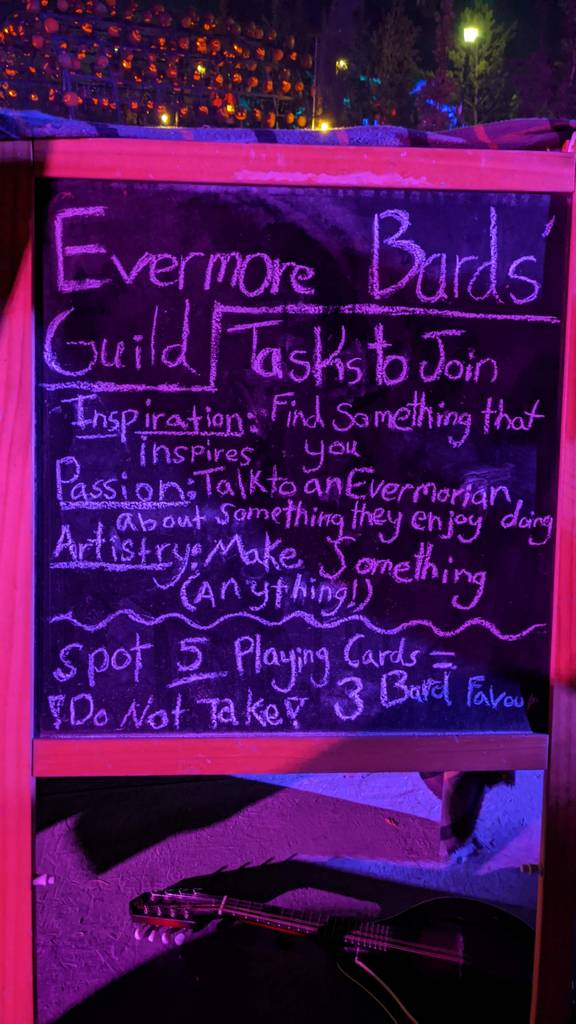 Evermore Bards'
Guild Tasks to Join
Inspiration: Find Something that
inspires you
Passion: Talk to an Evermorian
about something they enjoy doing
Artistry: Make Something
(Anything!)
Spot 5 Playing Cards =
!Do Not Take! 3 Bard Favour